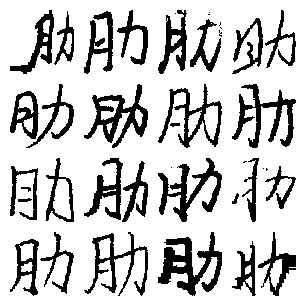 肋肋肋肋
肋肋肋肋
肋肋肋肋
肋肋肋肋